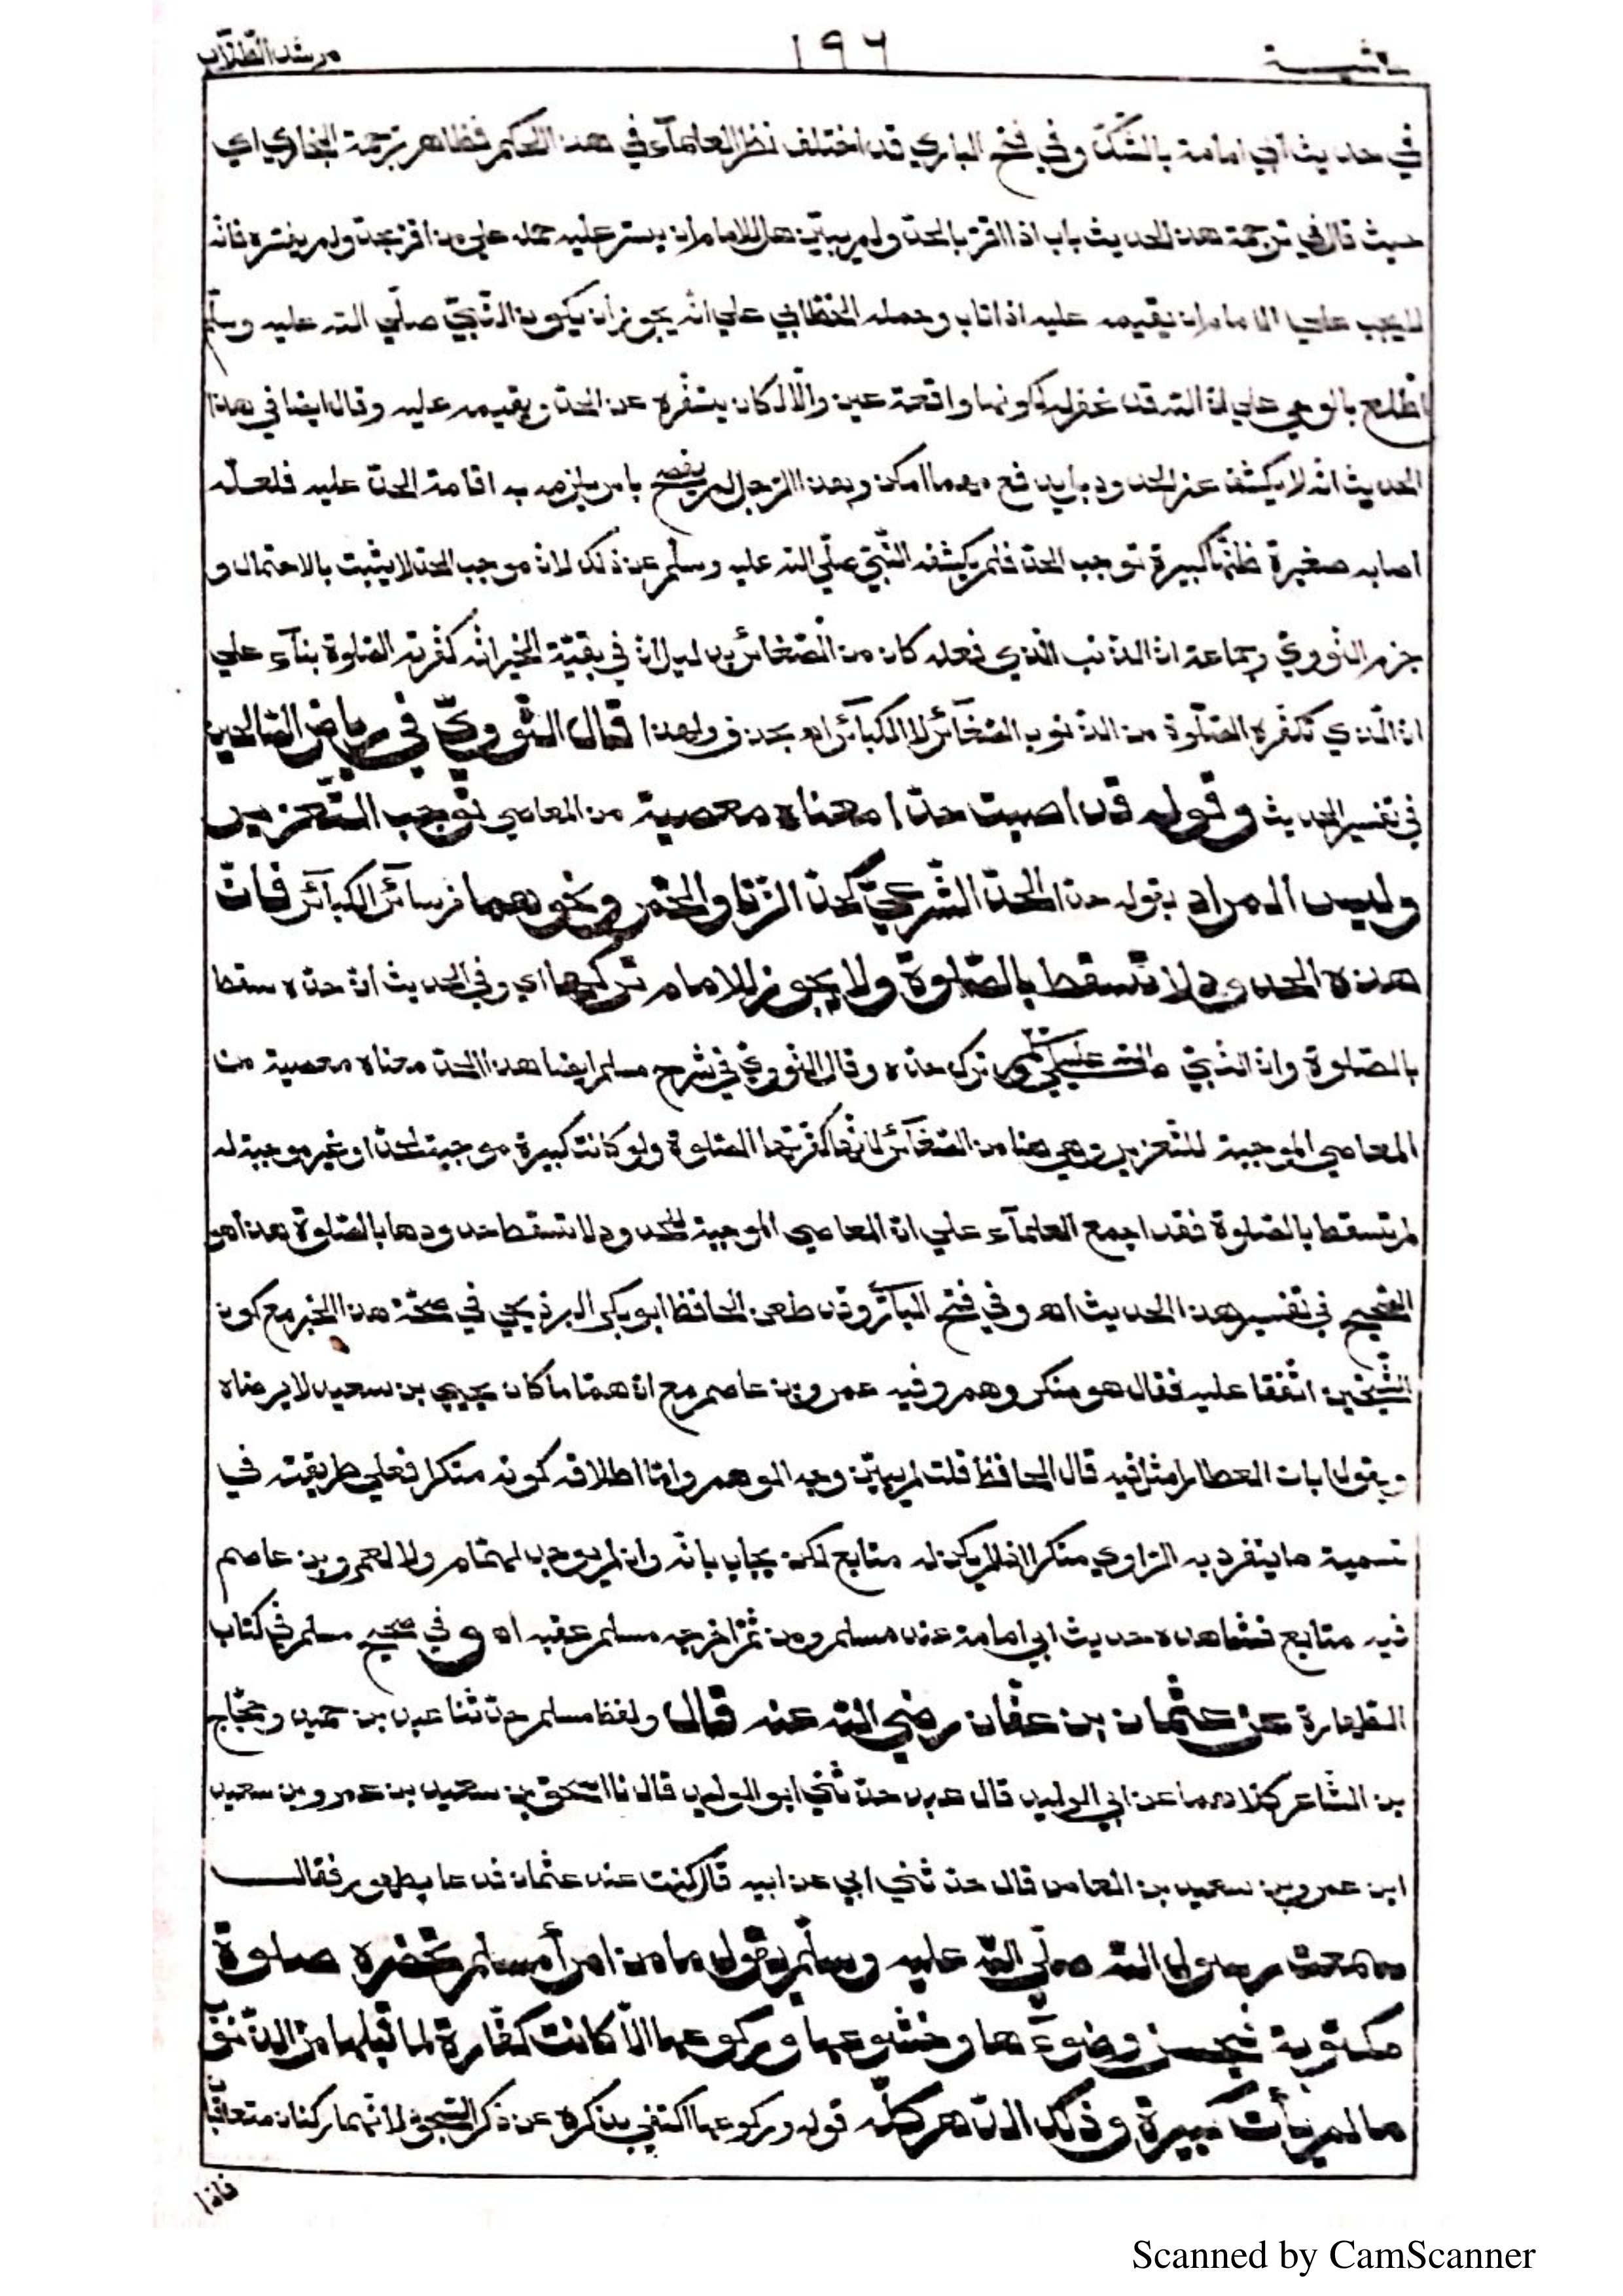 حاشية ١٩٦ مرشد الطلاب
في حديث أبي امامة بالشك وفي فتح الباري قد اختلف نظر العلمآء في هذا الحكم فظاهر ترجمة البخاري اي
حيث قال في ترجمة هذا الحديث باب اذا اقر بالحد ولم يبين هل للامام ان يستر عليه حمله علي من اقر بحد ولم يفسره فانه
لا يجب علي الامام ان يقيمه عليه اذا تاب وحمله الخطابي علي انه يجوز أن يكون النبي صلي الله عليه وسلم
اطلع بالوحي علي ان الله قد غفر له لكونها واقعة عين والا لكان يستفسره عن الحد ويقيمه عليه وقال ايضا في هذا
الحديث انه لا يكشف عن الحدود بل يدفع مهما امكن وهذا الرجل لم يفصح بامر يلزمه به اقامة الحد عليه فلعله
اصاب صغيرة ظنها كبيرة توجب الحد فلم يكشفه النبي صلي الله عليه وسلم عن ذلك لان موجب الحد لا يثبت بالاحتمال و
جزم النووي وجماعة ان الذنب الذي فعله كان من الصغائر بدليل ان في بقية الخبر انه كفرته الصلوة بنآء علي
ان الذي تكفره الصلوة من الذنوب الصغآئر لا الكبآئر اه بحذف ولهذا قال النووي في رياض الصالحين
في تفسير الحديث وقوله قد اصبت حدا معناه معصية من المعاصي توجب التعزير
وليس المراد بقوله حدا الحد الشرعي كحد الزنا والخمر ونحوهما من سآئر الكبآئر فان
هذه الحدود لا تسقط بالصلوة ولا يجوز للامام تركها اي وفي الحديث ان حده سقط
بالصلوة وان النبي صلي الله عليه وسلم ترك حده وقال النووي في شرح مسلم ايضا هذا الحد معناه معصية من
المعاصي الموجبة للتعزير وهي هنا من الصغآئر لانها كفرتها الصلوة ولو كانت كبيرة موجبة لحد او غير موجبة له
لم تسقط بالصلوة فقد اجمع العلمآء علي ان المعاصي الموجبة للحدود لا تسقط حدودها بالصلوة هذا هو
الصحيح في تفسير هذا الحديث اه وفي فتح الباري وقد طعن الحافظ ابو بكر البرذيجي في صحة هذا الخبر مع كون
الشيخين اتفقا عليه فقال هو منكر وهم وفيه عمرو بن عاصم مع ان هماما كان يحيي بن سعيد لا يرضاه
ويقول ابان العطار امثل منه قال الحافظ قلت لم يبين وجه الوهم واما اطلاقه كونه منكرا فعلي طريقته في
تسمية ما ينفرد به الراوي منكرا اذا لم يكن له متابع لكن يجاب بانه وان لم يوجد لهمام ولا لعمرو بن عاصم
فيه متابع فشاهده حديث ابي امامة عند مسلم ومن ثم اخرجه مسلم عقبه اه وفي صحيح مسلم في كتاب
الطهارة عن عثمان بن عفان رضي الله عنه قال ولفظ مسلم حدثنا عبد بن حميد وحجاج
بن الشاعر كلاهما عن ابي الوليد قال عبد حدثني ابو الوليد قال نا اسحق بن سعيد بن عمرو بن سعيد
ابن عمرو بن سعيد بن العاص قال حدثني ابي عن ابيه قال كنت عند عثمان فدعا بطهور فقال
سمعت رسول الله صلي الله عليه وسلم يقول ما من امرأ مسلم تحضره صلوة
مكتوبة فيحسن وضوءها وخشوعها وركوعها الا كانت كفارة لما قبلها من الذنوب
ما لم يأت كبيرة وذلك الدهر كله قوله وركوعها اكتفي بذكره عن ذكر السجود لانهما ركنان متعاقبان
فاذا
Scanned by CamScanner